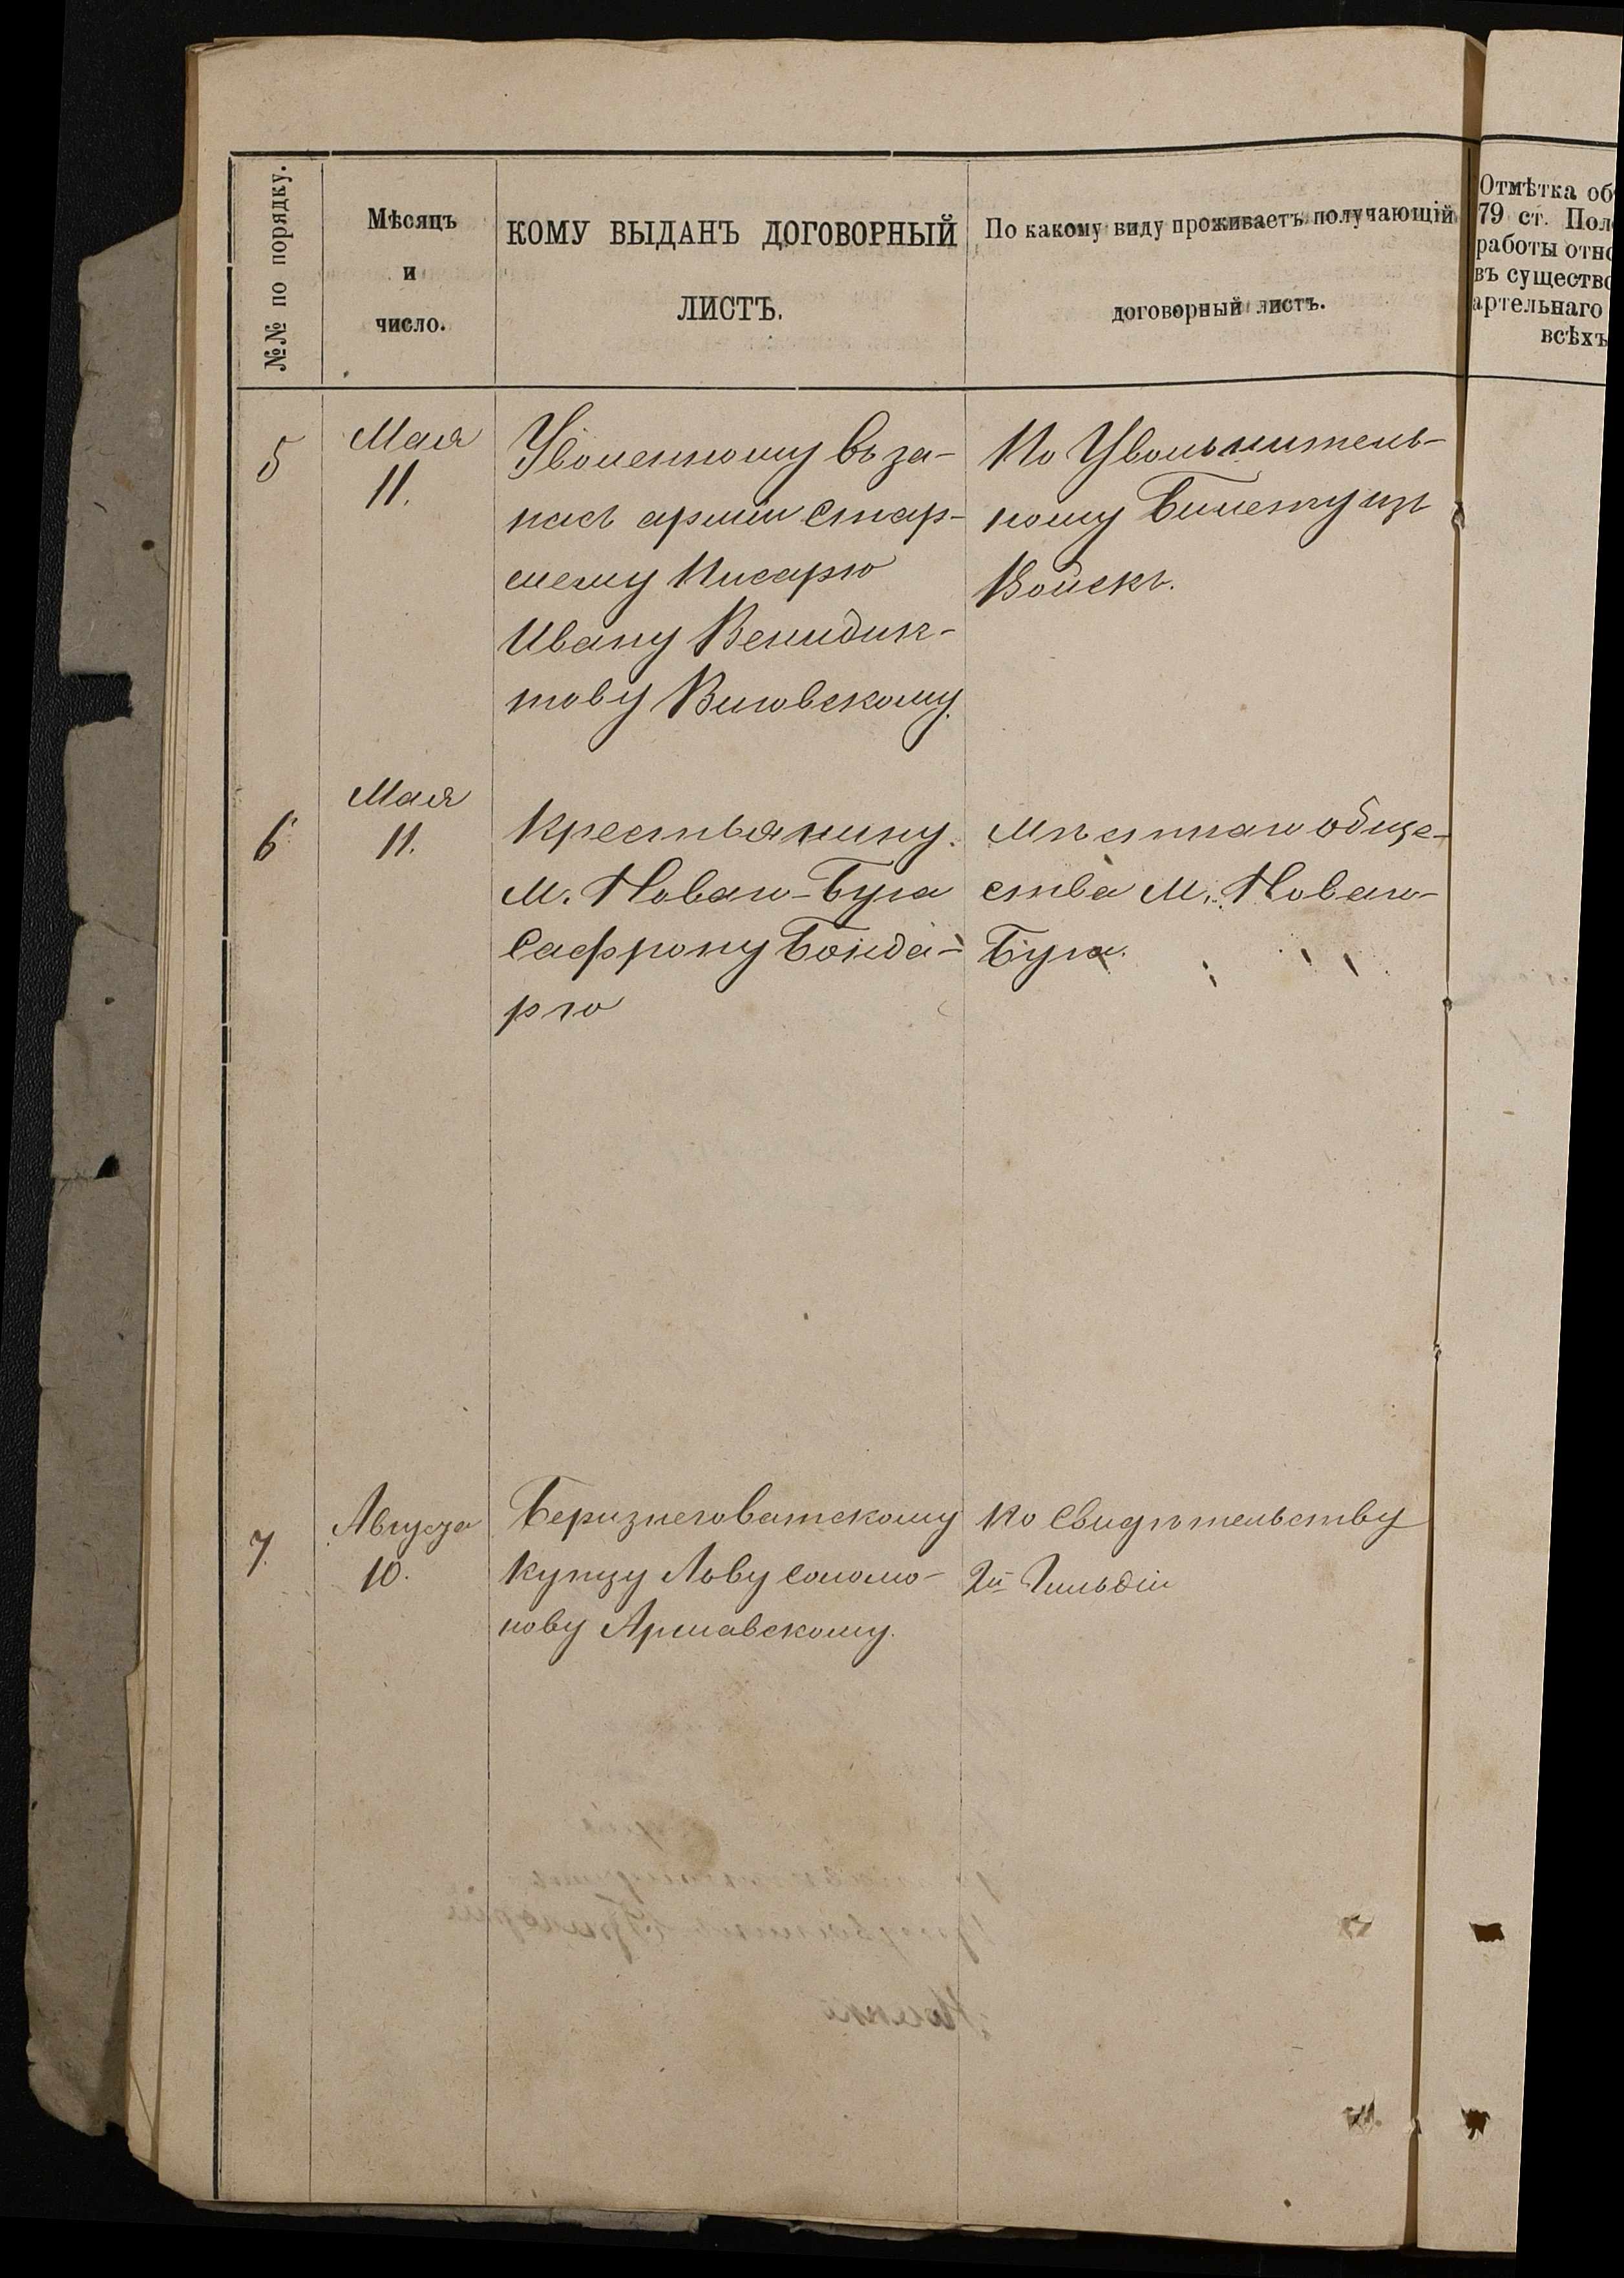 №№ по порядку.
Мѣсяцъ
и
число.
КОМУ ВЫДАНЪ ДОГОВОРНЫЙ
ЛИСТЪ.
По какому виду проживаетъ получающій
договорный листъ.
Отмѣтка об
79 ст. Пол
работы отно
въ существо
артельнаго
всѣхъ
5
Мая
11.
Уволенному въ за-
пасъ арміи Стар-
шему Писарю
Ивану Венидик-
тову Виговскому.
По Увольнитель-
ному Билету изъ
Войскъ.
6
Мая
11.
Крестьянину.
М. Новаго-Буга
Сафрону Бонда-
рю
Мѣстнаго обще-
ства М. Новаго-
Буга.
7
Августа
10.
Беризнеговатскому
Купцу Лову Соломо-
нову Аршавскому.
По Свидѣтельству
2й Гильдіи